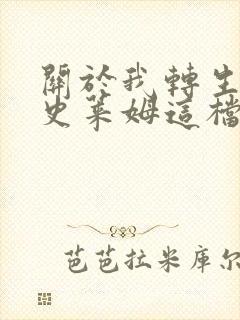 關於我轉生
史萊姆這檔
芭芭拉米库尔